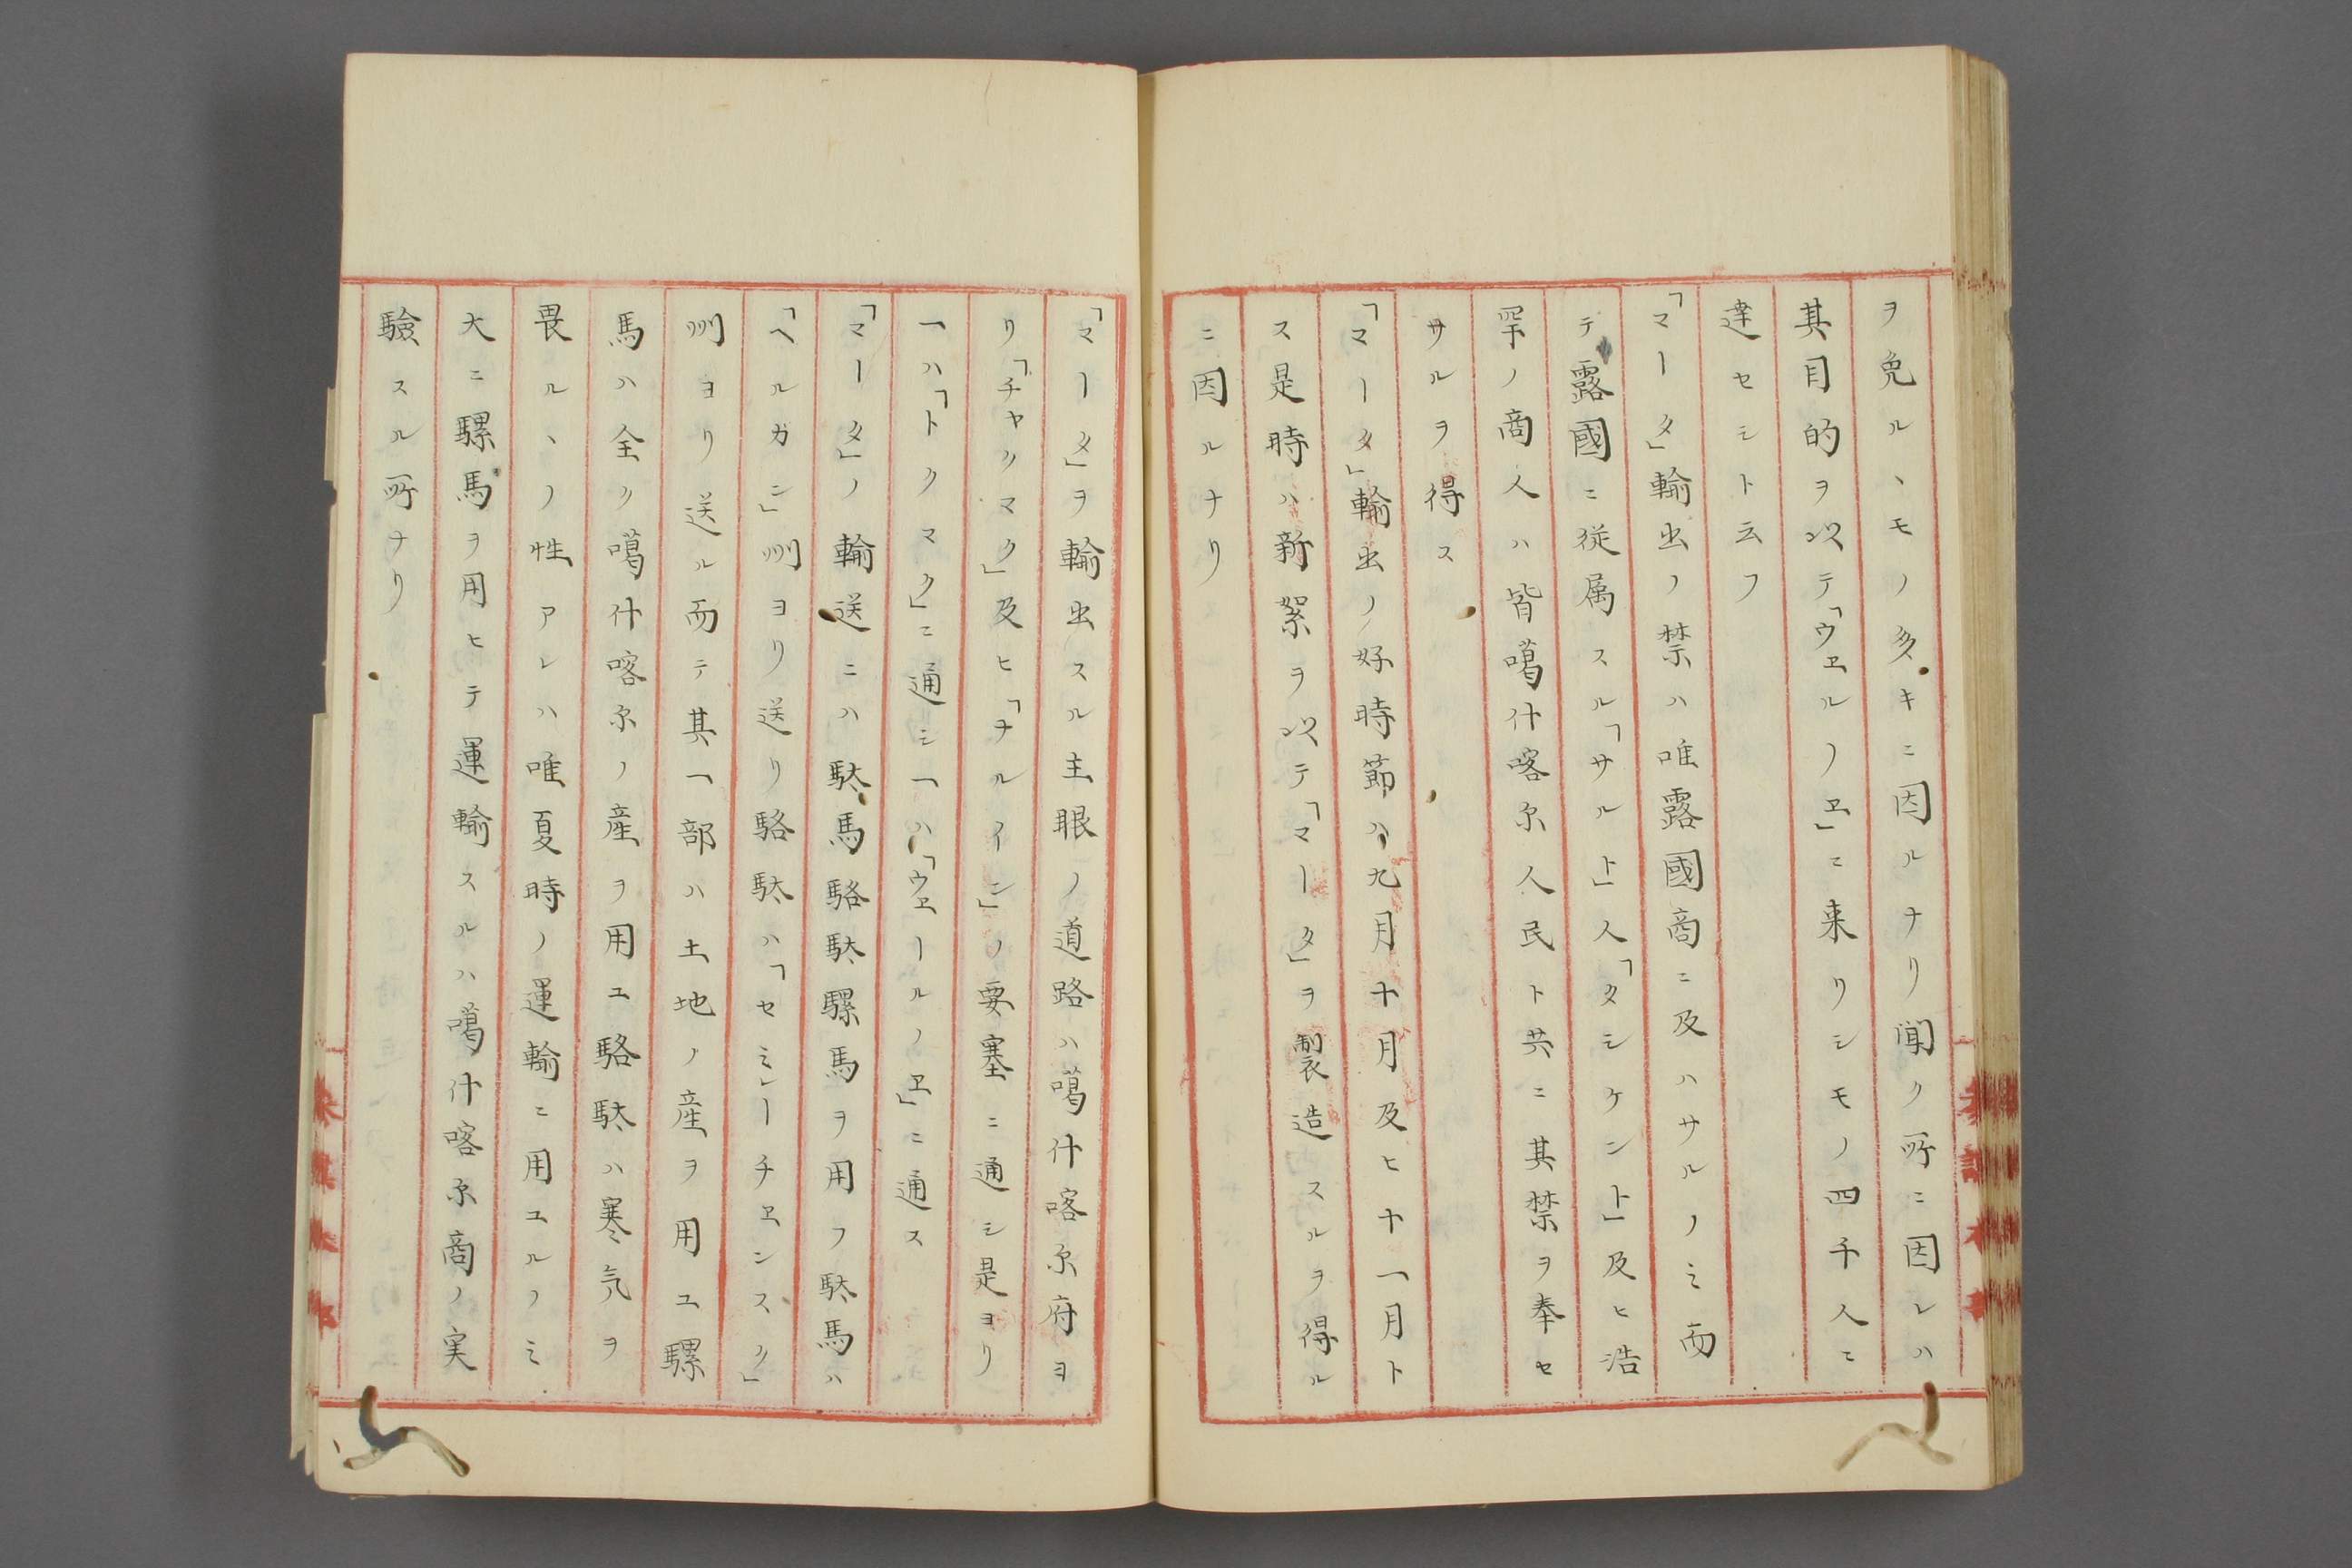 ヲ免ルヽモノ多キニ因ルナリ聞ク所ニ因レハ
其目的ヲ以テ「ウヱルノヱ」ニ来リシモノ四千人ニ
達セシト云フ
「マータ」輸出ノ禁ハ唯露國商ニ及ハサルノミ而
テ露國ニ従属スル「サルト」人「タシケント」及ヒ浩
罕ノ商人ハ皆噶什喀尓人民ト共ニ其禁ヲ奉セ
サルヲ得ス
「マータ」輸出ノ好時節ハ九月十月及ヒ十一月ト
ス是時ハ新絮ヲ以テ「マータ」ヲ製造スルヲ得ル
ニ因ルナリ
「マータ」ヲ輸出スル主眼ノ道路ハ噶什喀尓府ヨ
リ「チャクマク」及ヒ「ナルイン」ノ要塞ニ通シ是ヨリ
一ハ「トクマク」ニ通シ一ハ「ウヱールノヱ」ニ通ス
「マータ」ノ輸送ニハ駄馬駱駄騾馬ヲ用フ駄馬ハ
「ヘルガン」州ヨリ送リ駱駄ハ「セミーチヱンスク」
州ヨリ送ル而テ其一部ハ土地ノ産ヲ用ユ騾
馬ハ全ク噶什喀尓ノ産ヲ用ユ駱駄ハ寒気ヲ
畏ルヽノ性アレハ唯夏時ノ運輸ニ用ユルノミ
大ニ騾馬ヲ用ヒテ運輸スルハ噶什喀尓商ノ実
驗スル所ナリ